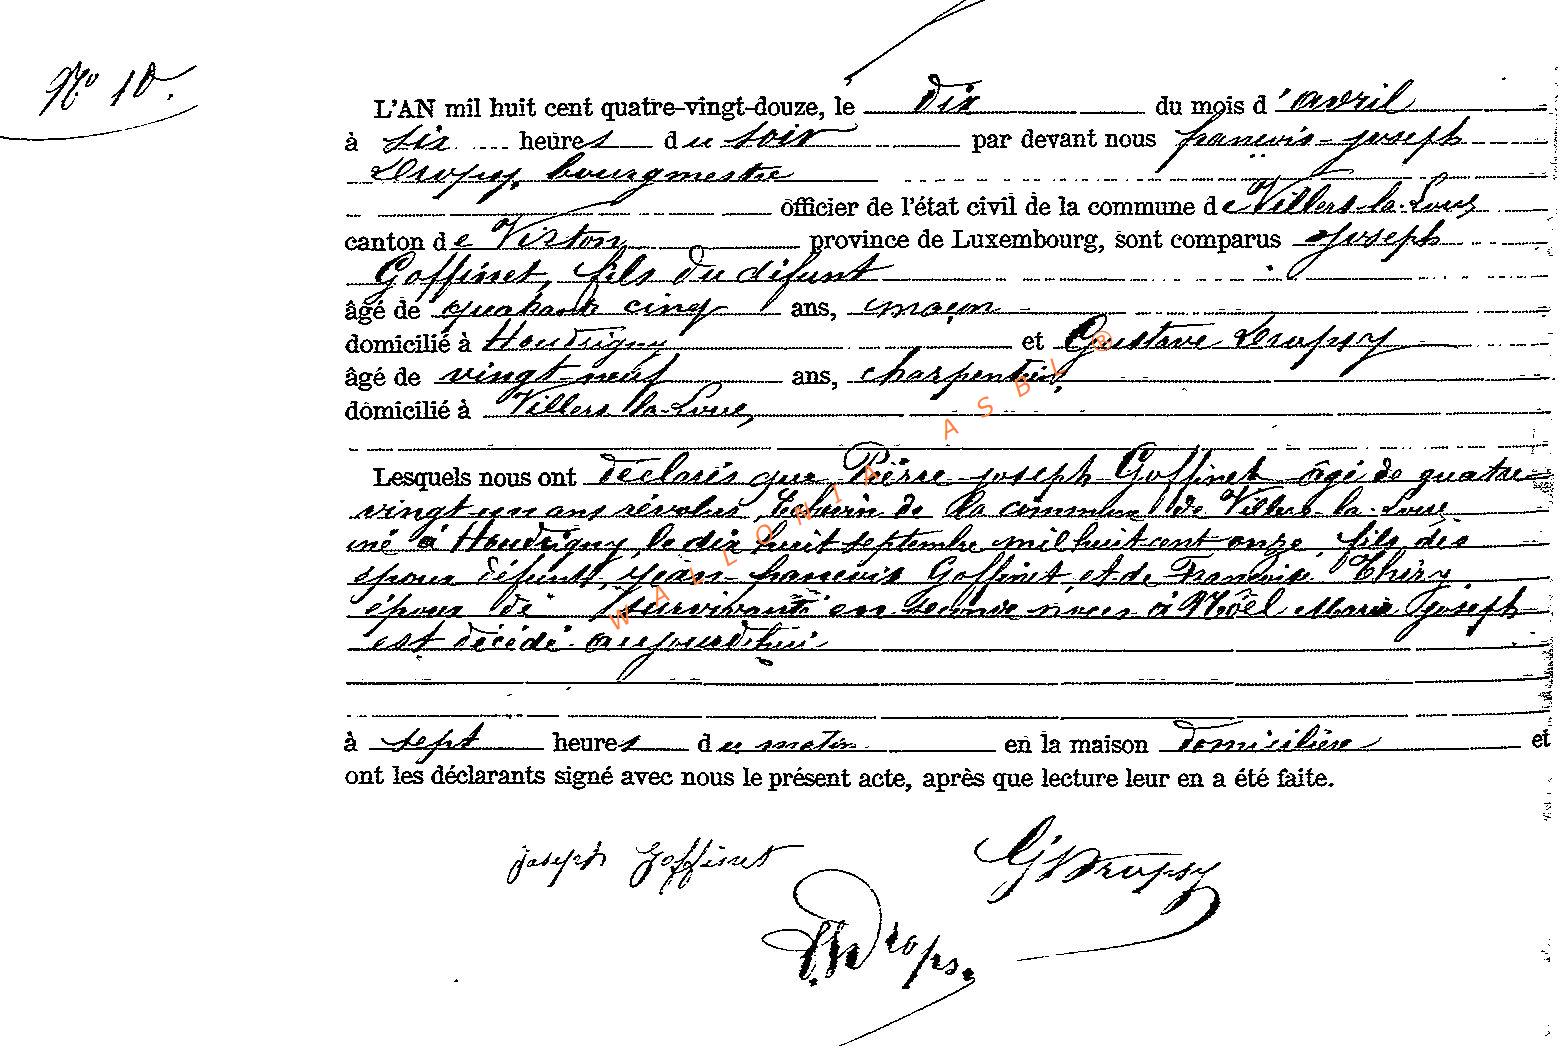 No 10.
L'AN mil huit cent quatre-vingt-douze, le dix du mois d'avril
à six heures du soir par devant nous françois-joseph
Dropsy, bourgmestre
officier de l'état civil de la commune de Villers-la-Loue,
canton de Virton, province de Luxembourg, sont comparus Joseph
Goffinet, fils du difunt
âgé de quarante cinq ans, maçon
domicilié à Houdrigny et Gustave Dropsy
âgé de vingt-neuf ans, charpentier,
domicilié à Villers-la-Loue,
Lesquels nous ont déclarés que Pierre-joseph Goffinet âgé de quatre
vingt un ans révolus, Echevin de la commune de Villers-la-Loue
né à Houdrigny, le dix huit septembre mil huit cent onze, fils des
époux défunts, Jean-francois Goffinet et de Francoise Thiry,
époux de survivante en seconde noces à Noël Marie joseph
est décédé aujourdhui
à sept heures du matin en la maison domicilière et
ont les déclarants signé avec nous le présent acte, après que lecture leur en a été faite.
joseph Goffinet
G Dropsy
WALLONIA ASBL ®